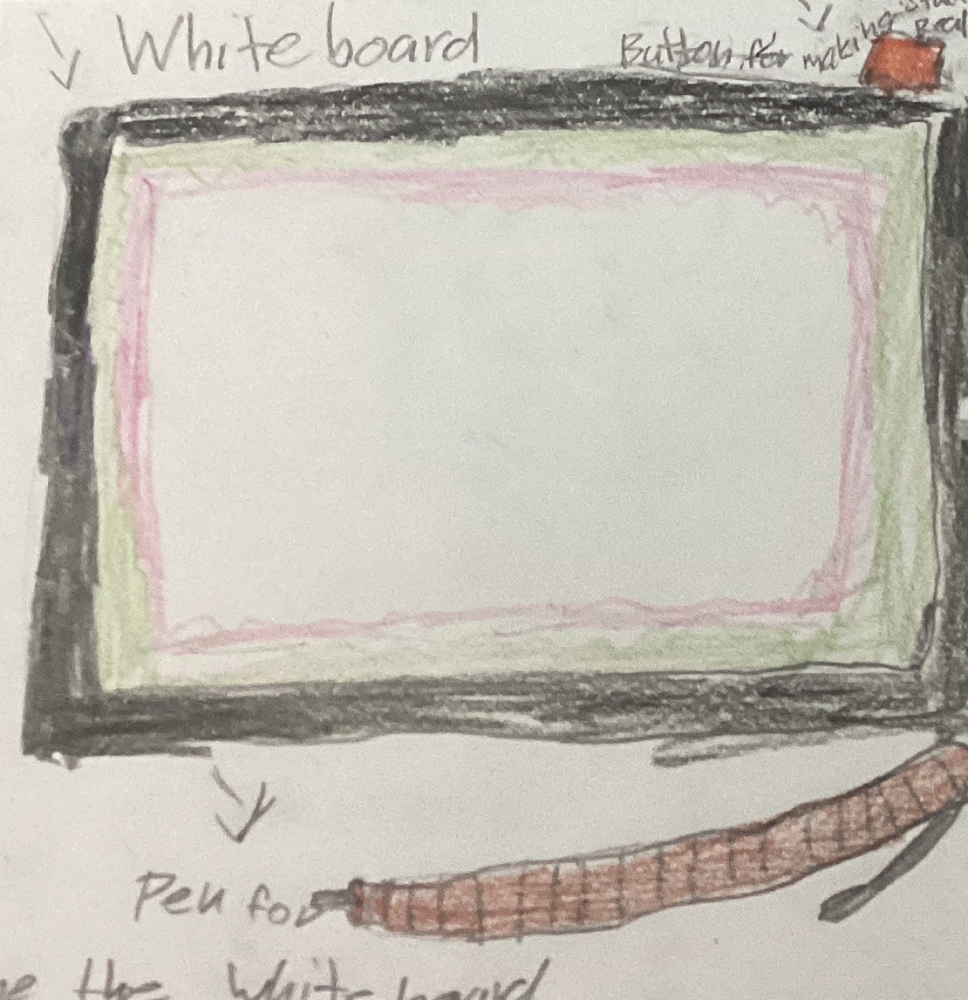 White board
Button for making stuff Real
Pen for
the White board